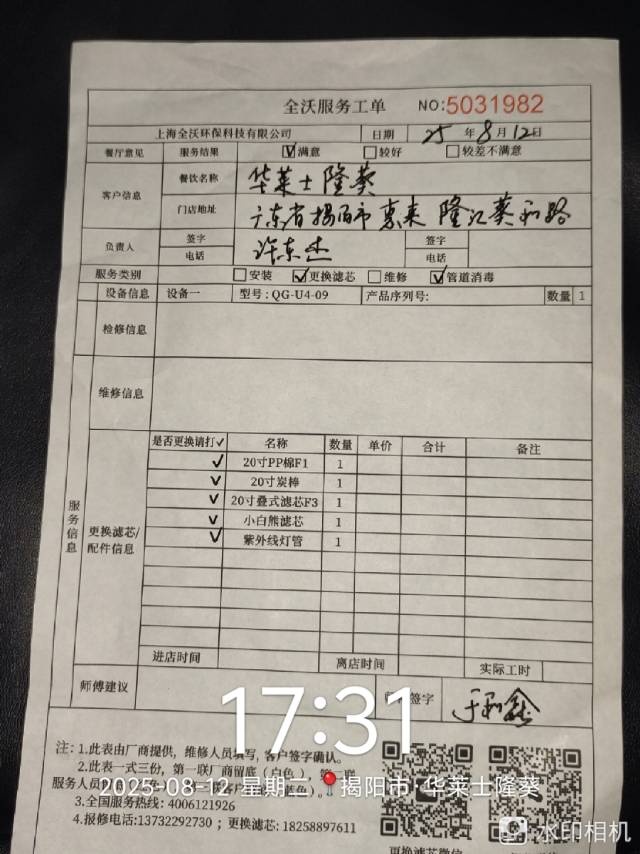 全沃服务工单 NO:5031982
上海全沃环保科技有限公司 日期 25 年 8 月 12 日
餐厅意见 服务结果 ☑满意 ☐较好 ☐较差不满意
客户信息 餐饮名称 华莱士隆葵
门店地址 广东省揭阳市惠来隆江葵和路
负责人 签字 许东杰 签字
电话 电话
服务类别 ☐安装 ☑更换滤芯 ☐维修 ☑管道消毒
设备信息 设备一 型号:QG-U4-09 产品序列号: 数量 1
检修信息
维修信息
服务信息
更换滤芯/配件信息
是否更换请打✓ 名称 数量 单价 合计 备注
✓ 20寸PP棉F1 1
✓ 20寸炭棒 1
✓ 20寸叠式滤芯F3 1
✓ 小白熊滤芯 1
✓ 紫外线灯管 1
进店时间 离店时间 实际工时
师傅建议 签字
17:31
注: 1.此表由厂商提供, 维修人员填写, 客户签字确认。
2.此表一式三份, 第一联厂商留底(白色)
服务人员
2025-08-12 星期二 揭阳市·华莱士隆葵
3.全国服务热线: 4006121926
4.报修电话:13732292730 ; 更换滤芯: 18258897611
水印相机